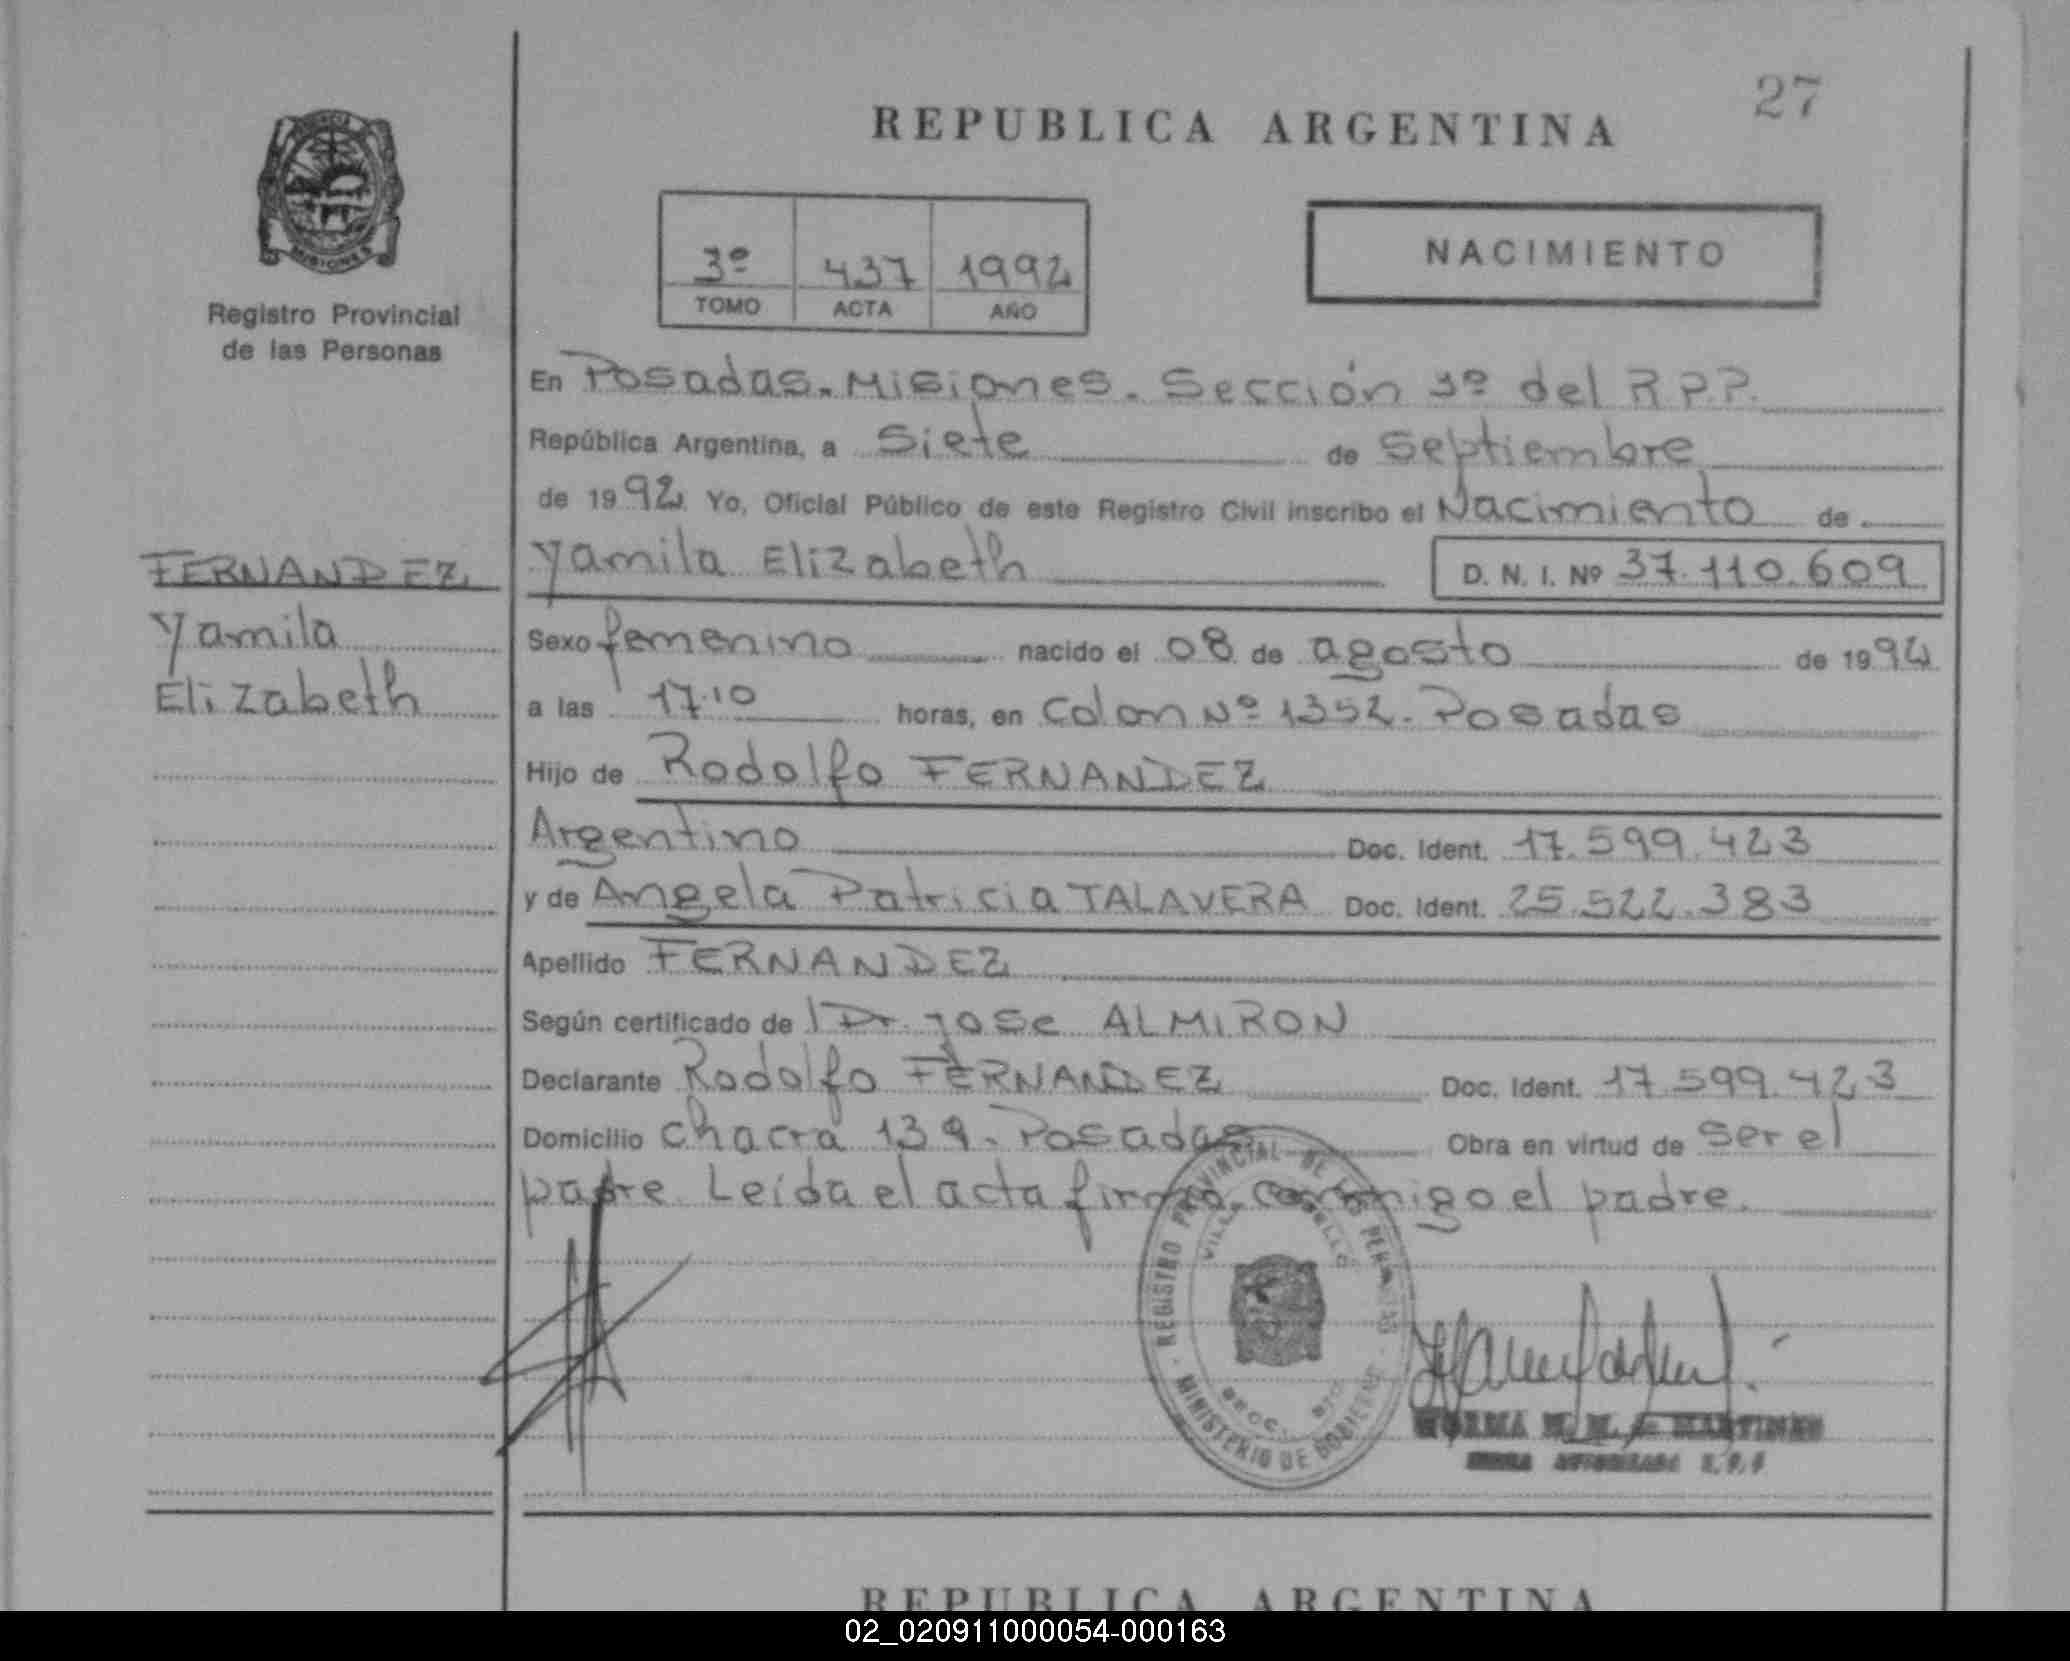 27
REPUBLICA ARGENTINA
PROVINCIA DE MISIONES
Registro Provincial
de las Personas
3º 437 1992
TOMO ACTA AÑO
NACIMIENTO
En Posadas. Misiones. Sección 3º del R.P.P.
República Argentina, a Siete de Septiembre
de 1992 Yo, Oficial Público de este Registro Civil inscribo el Nacimiento de
FERNANDEZ
Yamila
Elizabeth
Yamila Elizabeth D. N. I. Nº 37.110.609
Sexo femenino nacido el 08 de agosto de 1992
a las 17.10 horas, en Colon Nº 1352. Posadas
Hijo de Rodolfo FERNANDEZ
Argentino Doc. Ident. 17.599.423
y de Angela Patricia TALAVERA Doc. Ident. 25.522.383
Apellido FERNANDEZ
Según certificado de Dr. Jose ALMIRON
Declarante Rodolfo FERNANDEZ Doc. Ident. 17.599.423
Domicilio Chacra 139. Posadas Obra en virtud de ser el
padre. Leída el acta firma conmigo el padre.
REGISTRO PROVINCIAL DE LAS PERSONAS
MINISTERIO DE GOBIERNO
VILLA
NORMA MARTINEZ
FIRMA AUTORIZADA
REPUBLICA ARGENTINA
02_020911000054-000163